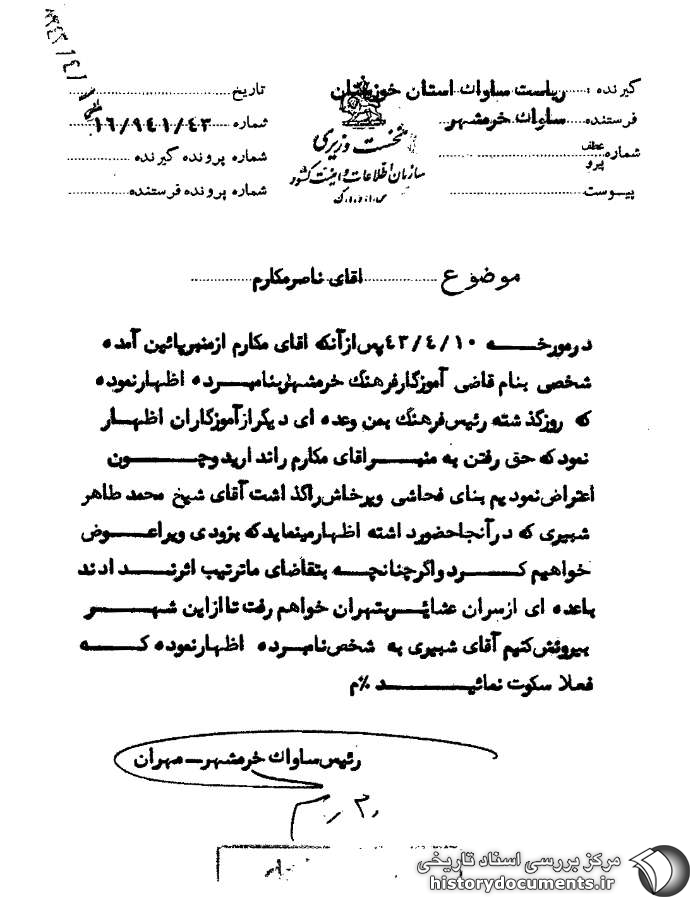 گیرنده : ریاست ساواك استان خوزستان
فرستنده ساواك خرمشهر
شماره عطف پیرو
پیوست
نخست وزیری
سازمان اطلاعات و امنیت کشور
س.ا.و.ا.ك
تاریخ
شماره ١٦/٩٤١/٤٣
شماره پرونده گیرنده
شماره پرونده فرستنده
موضوع اقای ناصرمکارم
درمورخه ٤٣/٤/١٠ پس ازآنکه اقای مکارم ازمنبرپائین آمده
شخصی بنام قاضی آموزگارفرهنگ خرمشهربنامبرده اظهارنموده
که روزگذشته رئیس فرهنگ بمن وعده ای دیگرازآموزگاران اظهار
نمودکه حق رفتن به منبراقای مکارم راندارید وچون
اعتراض نمودیم بنای فحاشی وپرخاش راگذاشت آقای شیخ محمد طاهر
شبیری که درآنجاحضورداشته اظهارمینمایدکه بزودی ویراعوض
خواهیم کرد واگرچنانچه بتقاضای ماترتیب اثرندادند
باعده ای ازسران عشایربتهران خواهم رفت تاازاین شهر
بیرونش کنیم آقای شبیری به شخص نامبرده اظهارنموده که
فعلا سکوت نمائید ٪م
رئیس ساواك خرمشهر - مهران
مرکز بررسی اسناد تاریخی
historydocuments.ir